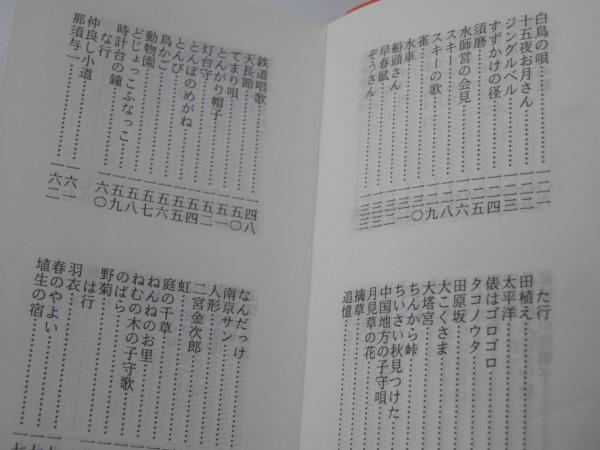 白鳥の唄……一二一
十五夜お月さん……一二二
ジングルベル……一二三
すずかけの径……一二四
須磨……一二五
水師営の会見……一二六
スキー……一二八
スキーの歌……一二九
雀……一三〇
水車……一三一
船頭さん……
早春賦……
ぞうさん……
た行
田植え……
太平洋……
俵はゴロゴロ……
タコノウタ……
田原坂……
大こくさま……
大塔宮……
ちんから峠……
ちいさい秋見つけた……
中国地方の子守唄……
月見草の花……
摘草……
追憶……
鉄道唱歌……一四八
天長節……一五〇
てまり唄……
とんがり帽子……一五二
灯台守……
とんぼのめがね……一五五
とんび……一五六
鳥かご……一五七
動物園……一五九
どじょっこふなっこ……一五九
時計台の鐘……一六〇
な行
仲良し小道……一六一
那須与一……一六二
なんだっけ……
南京サン……
人形……
二宮金次郎……
虹……
庭の千草……
ねんねのお里……
ねむの木の子守歌……
のばら……
野菊……
は行
羽衣……
春のやよい……
埴生の宿……